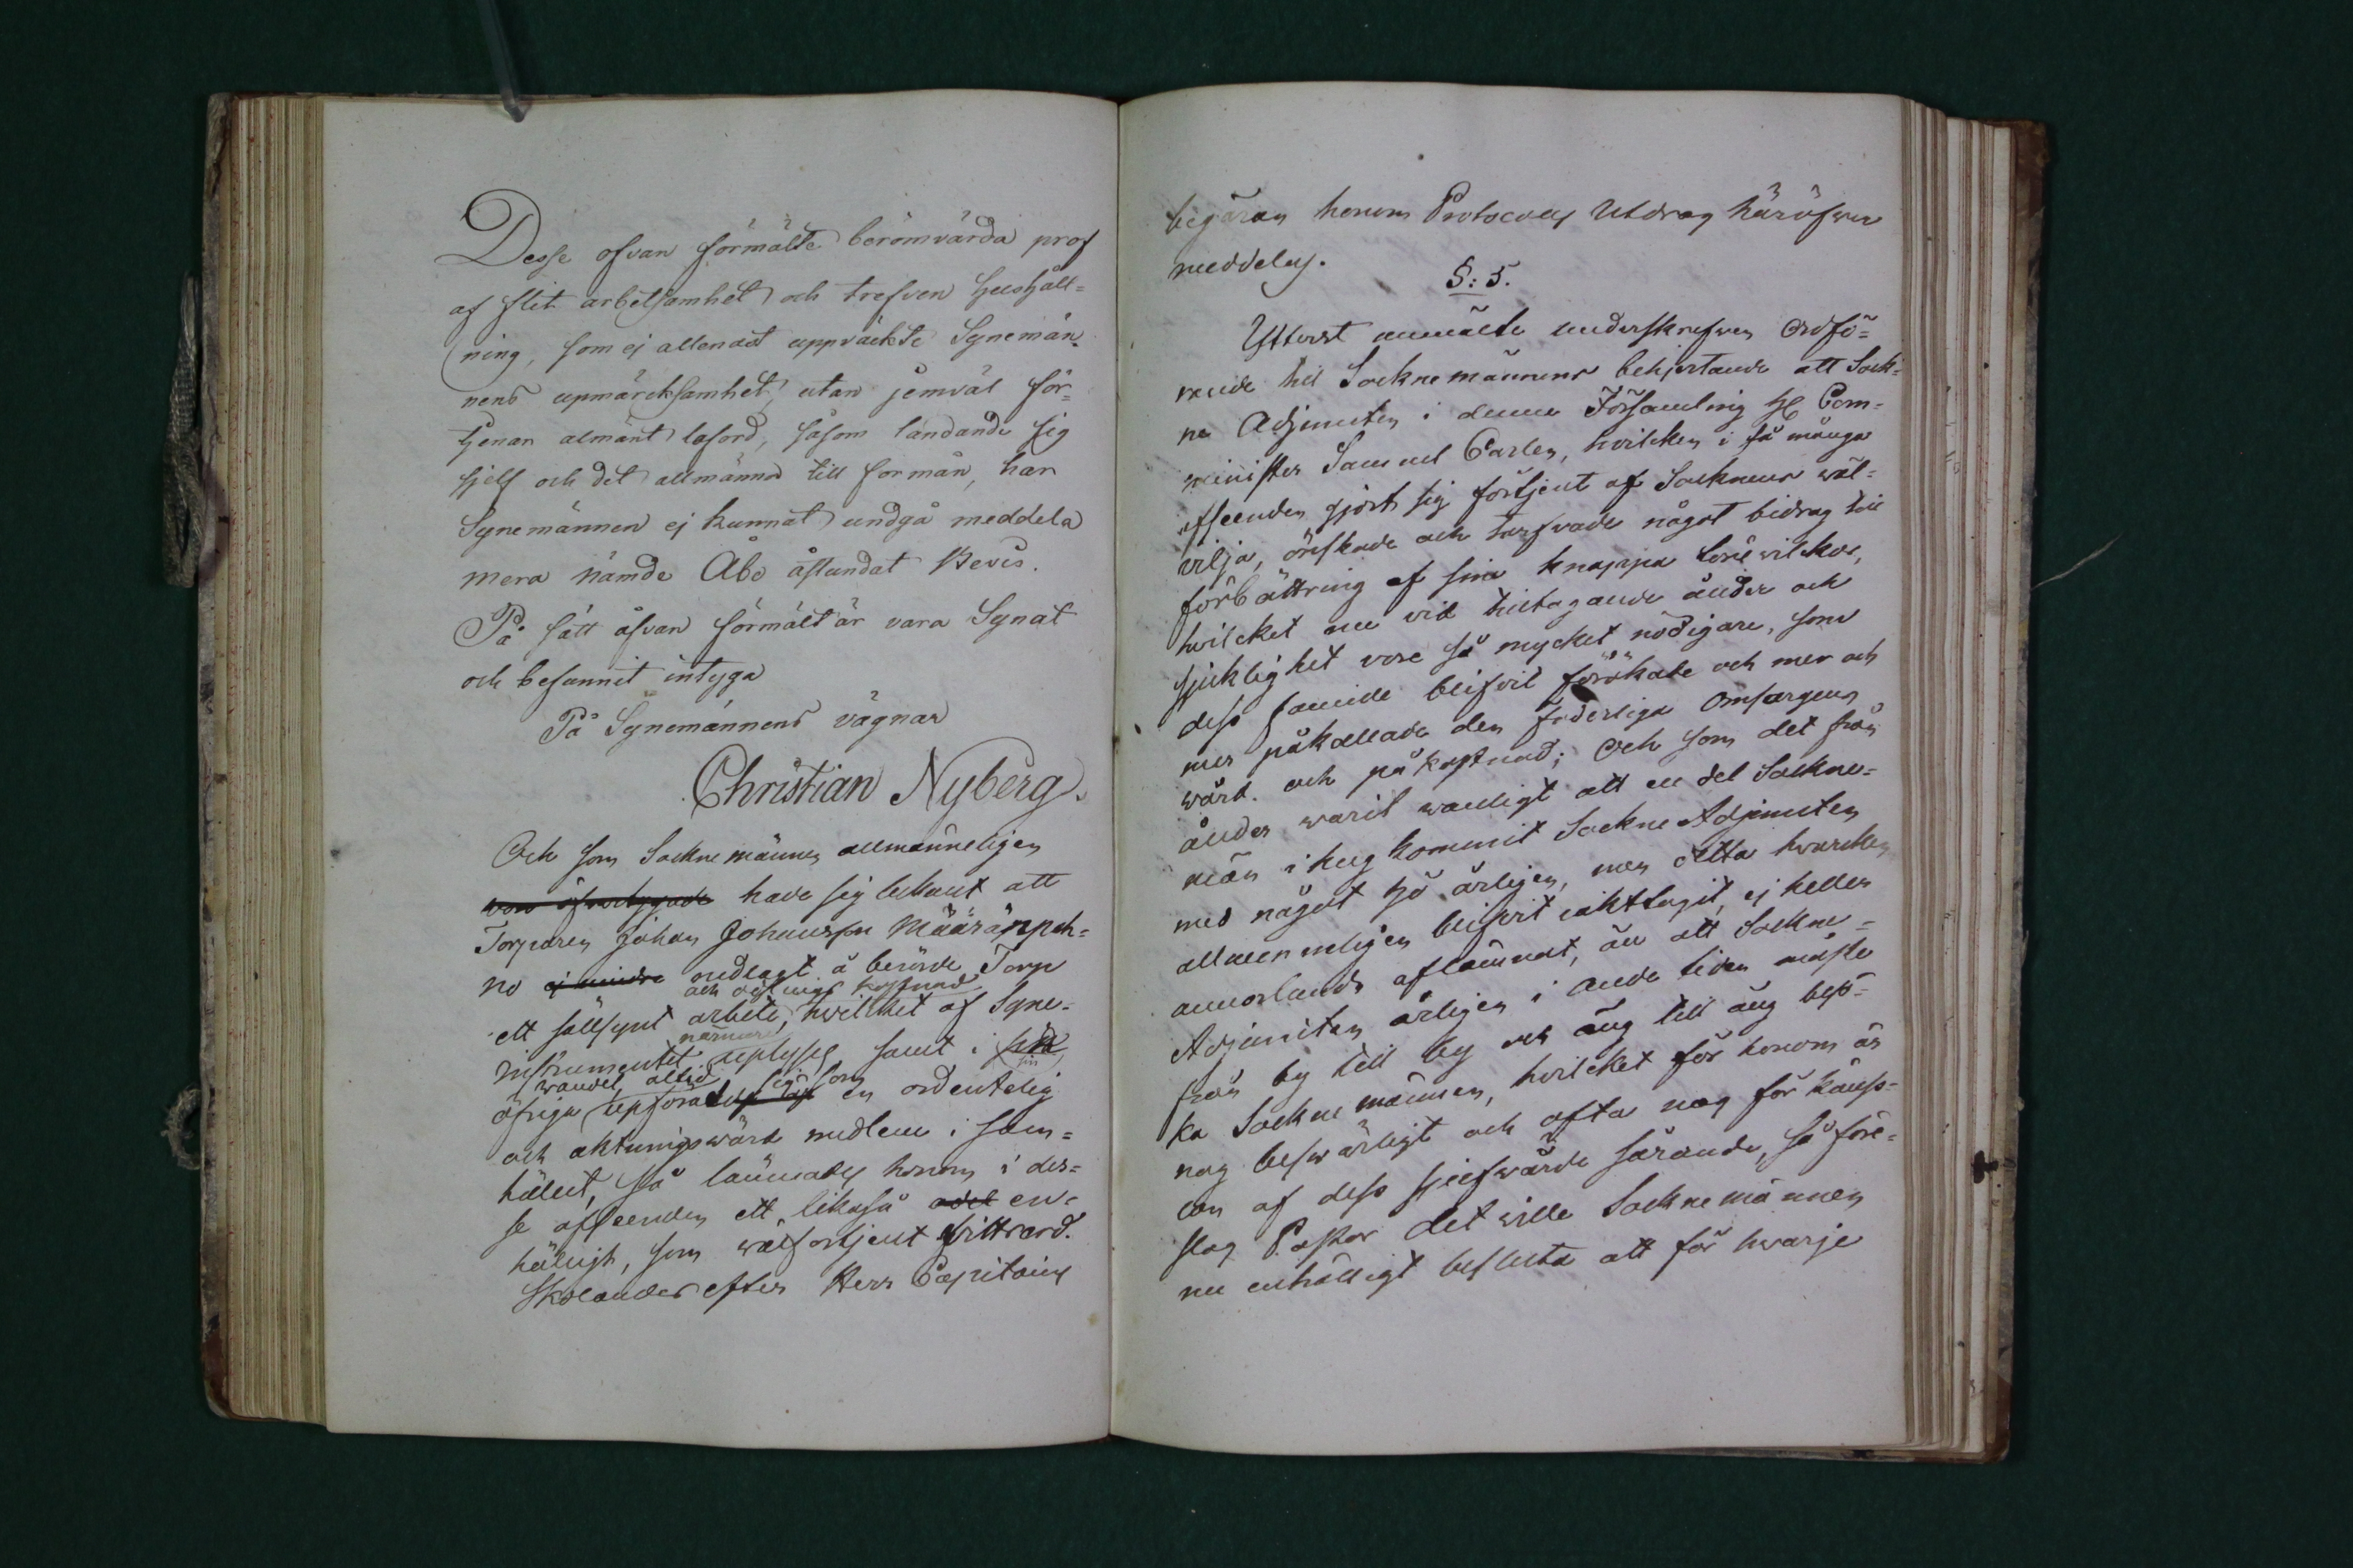 Desse ofvan förmälte berömvärda prof
af flit arbetsamhet och trefven hushåll=
ning, som ej allenast uppväckte Synemän=
nens upmärcksamhet, utan jemväl för=
tjenar almänt lasord, såsom ländande sig
sjelf och det allmänna till formån, har
Synemännen ej kunnat undgå meddela
mera nämde Åbo åstundat Bevis.
På sätt åfvan förmält är vara Synat
och befunnit intyga
På Synemännens vägnar
Christian Nyberg.
Och som Sockne männen allmänneligen
voro öfvertygade hade sig bekant att
Torparen Johan Johansson Määränpeh=
no ej mindre nedlagt å berörde Torp
och kostnad
ett sällsynt arbete, hvilket af Syne-
närmare
instrumentet uplyses, samt i sitt
sin
wandel altid sig som
öfriga upförande en ordentelig
och aktningswärd medlem i sam=
hället, så lämnades honom i des=
se afseenden ett likaså adel en-
hälligt, som wälförtjent wittsord.
Skolandes efter Herr Capitains
begäran honom Protocolls Utdrag häröfwer
meddelas.
§: 5.
Ytterst anmälte underskrefven Ordfö=
rande till Sockne männens behjertande att Sock=
ne Adjuncten i denna Församling H Com=
minister Samuel Carlen, hvilcken i så många
afseenden gjort sig förtjent af Socknens wäl=
vilja, önskade och tarfvade något bidrag till
förbättring af sina knappa lönevilkor,
hvilcket nu vid tilltagande ålder och
sjuklighet vore så mycket nödigare, som
dess familie blifvit förökade och mer och
mer påkallade den faderliga omsorgens
wård och påkostnad; Och som det från
ålder warit wanligt att en del Sockne=
män ihug kommit Sockne Adjuncten
med något hö årligen, men detta hvarcken
allmenneligen blifvit iakttagit, ej heller
annorlunda aflämnat, än att Sockne=
Adjuncten årligen i Ande tiden måste
från by till by och äng till äng besö=
ka Sockne männen, hvilcket för honom är
nog beswärligt och ofta nog för käns=
lan af dess sjelfwärde sårande, så före=
slog Pastor det wille Sockne männen
nu enhälligt besluta att för hwarje